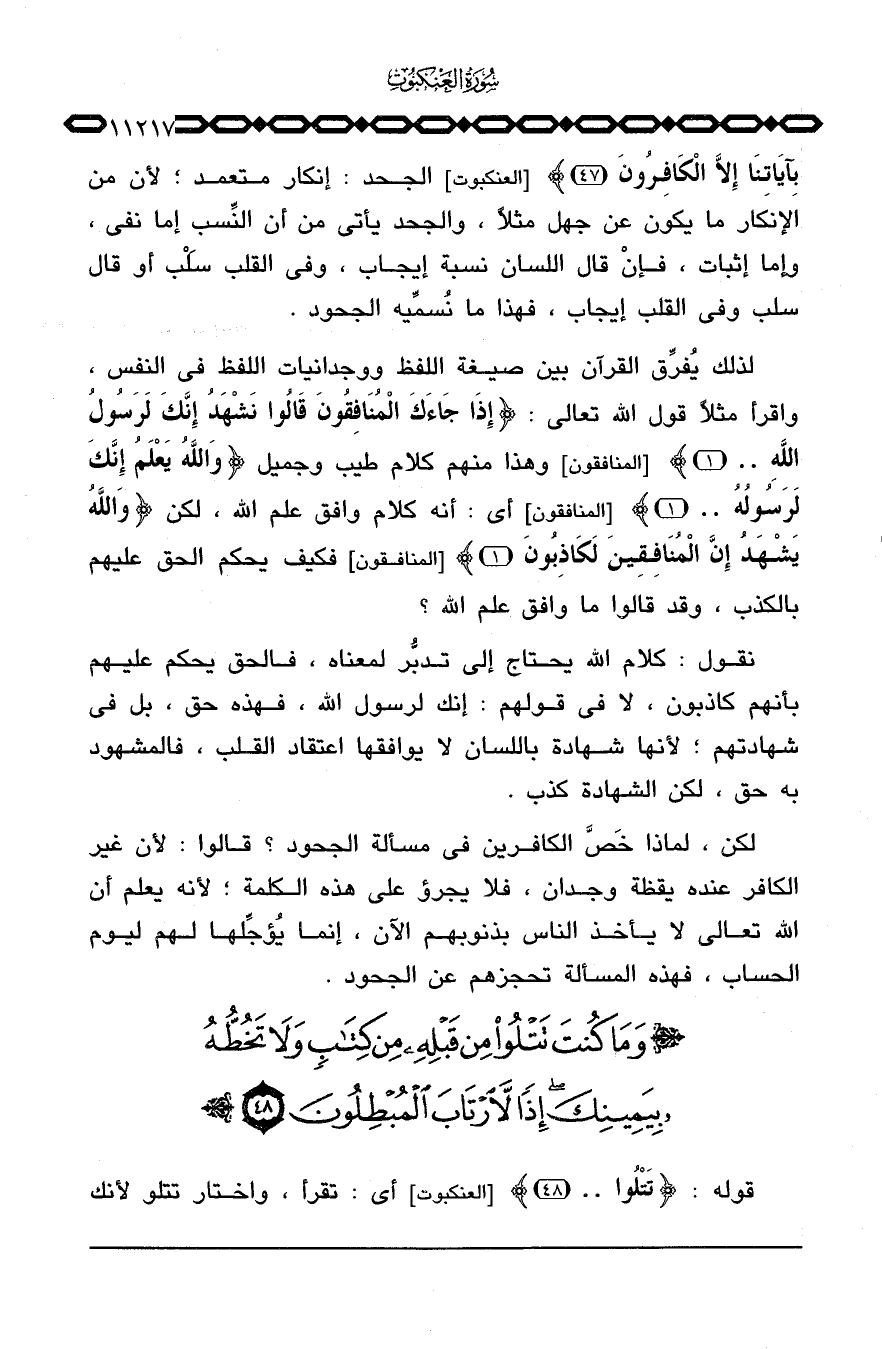 سُورَةُ العَنْكَبُوتِ
١١٢١٧
بِآيَاتِنَا إِلاَّ الْكَافِرُونَ (٤٧)﴾ [العنكبوت] الجـحد : إنكار مـتعمـد ؛ لأن من
الإنكار ما يكون عن جهل مثلاً ، والجحد يأتى من أن النِّسب إما نفى ،
وإما إثبات ، فـإنْ قال اللسان نسبة إيجـاب ، وفى القلب سلْب أو قال
سلب وفى القلب إيجاب ، فهذا ما نُسمِّيه الجحود .
لذلك يُفرِّق القرآن بين صيـغة اللفظ ووجدانيات اللفظ فى النفس ،
واقرأ مثلاً قول الله تعالى : ﴿إِذَا جَاءَكَ الْمُنَافِقُونَ قَالُوا نَشْهَدُ إِنَّكَ لَرَسُولُ
اللَّهِ .. (١)﴾ [المنافقون] وهذا منهم كلام طيب وجميل ﴿وَاللَّهُ يَعْلَمُ إِنَّكَ
لَرَسُولُهُ .. (١)﴾ [المنافقون] أى : أنه كلام وافق علم الله ، لكن ﴿وَاللَّهُ
يَشْهَدُ إِنَّ الْمُنَافِقِينَ لَكَاذِبُونَ (١)﴾ [المنافـقون] فكيف يحكم الحق عليهم
بالكذب ، وقد قالوا ما وافق علم الله ؟
نقـول : كلام الله يحـتاج إلى تـدبُّر لمعناه ، فـالحق يحكم عليـهم
بأنهم كاذبون ، لا فى قـولهم : إنك لرسول الله ، فـهذه حق ، بل فى
شهادتهم ؛ لأنها شـهادة باللسان لا يوافقها اعتقاد القـلب ، فالمشهود
به حق ، لكن الشهادة كذب .
لكن ، لماذا خَصَّ الكافـرين فى مسألة الجحود ؟ قـالوا : لأن غير
الكافر عنده يقظة وجـدان ، فلا يجرؤ على هذه الـكلمة ؛ لأنه يعلم أن
الله تعـالى لا يـأخـذ الناس بذنوبهـم الآن ، إنمـا يُؤجِّلهـا لـهم ليـوم
الحساب ، فهذه المسألة تحجزهم عن الجحود .
﴿وَمَا كُنتَ تَتْلُواْ مِن قَبْلِهِۦ مِن كِتَٰبٍ وَلَا تَخُطُّهُۥ
بِيَمِينِكَ ۖ إِذًا لَّٱرْتَابَ ٱلْمُبْطِلُونَ ٤٨﴾
قوله : ﴿تَتْلُوا .. (٤٨)﴾ [العنكبوت] أى : تقرأ ، واخـتار تتلو لأنك